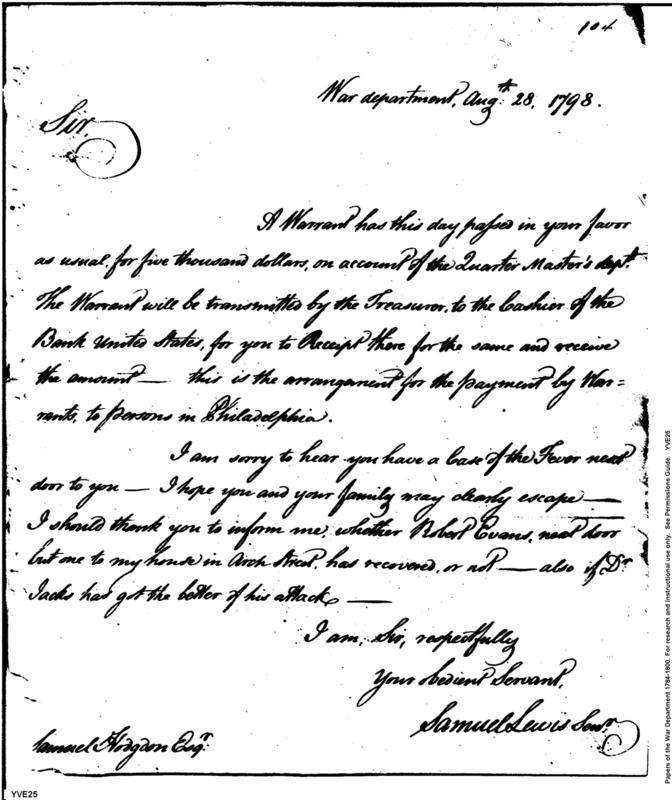 104
War department, Augt. 28, 1798.
Sir,
A Warrant has this day passed in your favor
as usual, for five thousand dollars, on account of the Quarter Master's dept.
The Warrant will be transmitted by the Treasurer, to the Cashier of the
Bank United States, for you to Receipt there for the same and receive
the amount — this is the arrangement for the payment by War=
rants, to persons in Philadelphia.
I am sorry to hear you have a Case of the Fever next
door to you — I hope you and your family may clearly escape —
I should thank you to inform me, whether Robert Evans, next door
but one to my house in Arch Street, has recovered, or not — also if Dr.
Jacks has got the better of his attack —
I am, Sir, respectfully
Your obedient Servant,
Samuel Lewis Senr.
Samuel Hodgdon Esqr.
YVE25
Papers of the War Department 1784-1800. For research and instructional use only. See Permissions Guide. YVE25